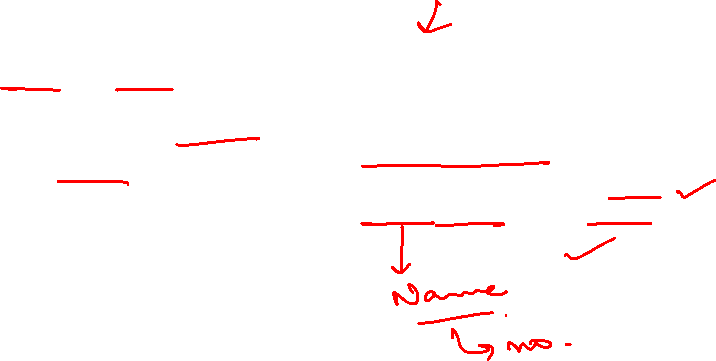 Name
no.